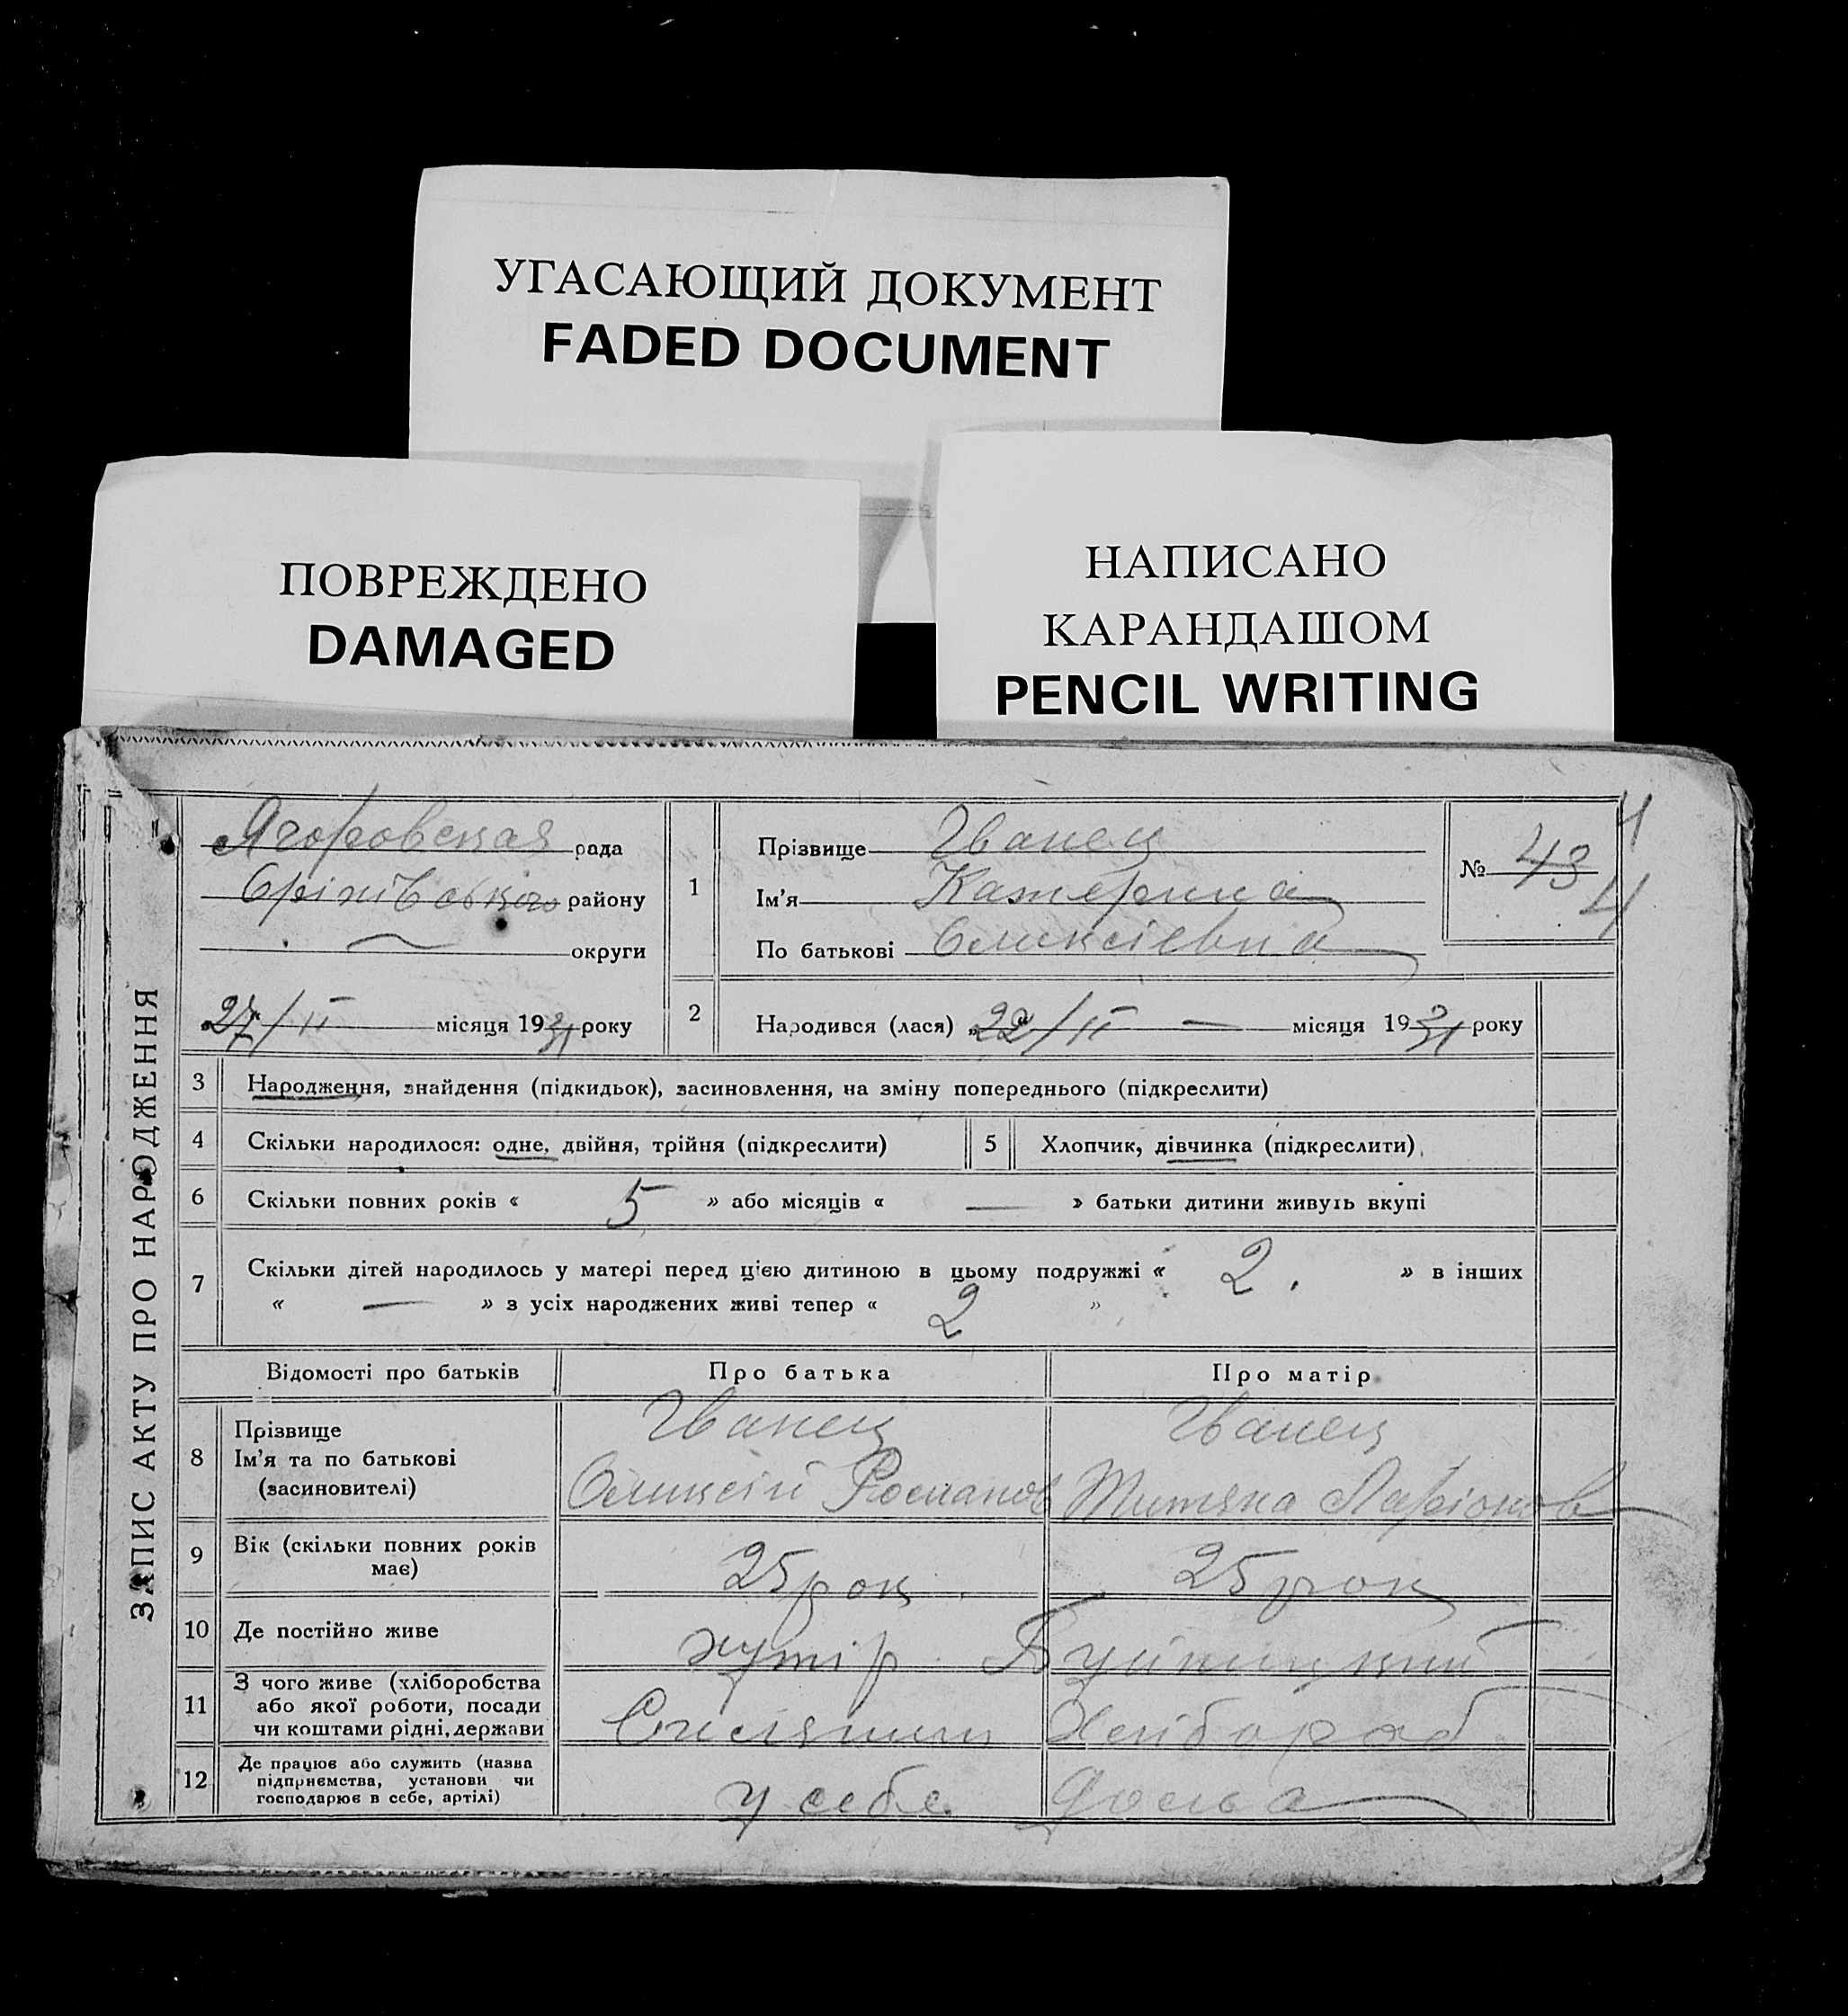 УГАСАЮЩИЙ ДОКУМЕНТ
FADED DOCUMENT
ПОВРЕЖДЕНО
DAMAGED
НАПИСАНО
КАРАНДАШОМ
PENCIL WRITING
ЗАПИС АКТУ ПРО НАРОДЖЕННЯ
рада
району
округи
27/II місяця 1931 року
1
Прізвище Іванец
Ім'я Катерина
По батькові Олексіевна
№ 43
2
Народився (лася) „22“/II — місяця 1931 року
3 Народження, знайдення (підкидьок), засиновлення, на зміну попереднього (підкреслити)
4 Скільки народилося: одне, двійня, трійня (підкреслити) 5 Хлопчик, дівчинка (підкреслити)
6 Скільки повних років « 5 » або місяців « — » батьки дитини живуть вкупі
7 Скільки дітей народилось у матері перед цією дитиною в цьому подружжі « 2. » в інших
« — » з усіх народжених живі тепер « 2 »
Відомості про батьків Про батька Про матір
8 Прізвище Іванец Іванец
Ім'я та по батькові
(засиновителі) Олексій Романов
9 Вік (скільки повних років має) 25 рок 25 рок
10 Де постійно живе хутір
11 З чого живе (хліборобства
або якої роботи, посади
чи коштами рідні, держави
12 Де працює або служить (назва
підприємства, установи чи
господарює в себе, артілі) у себе дома